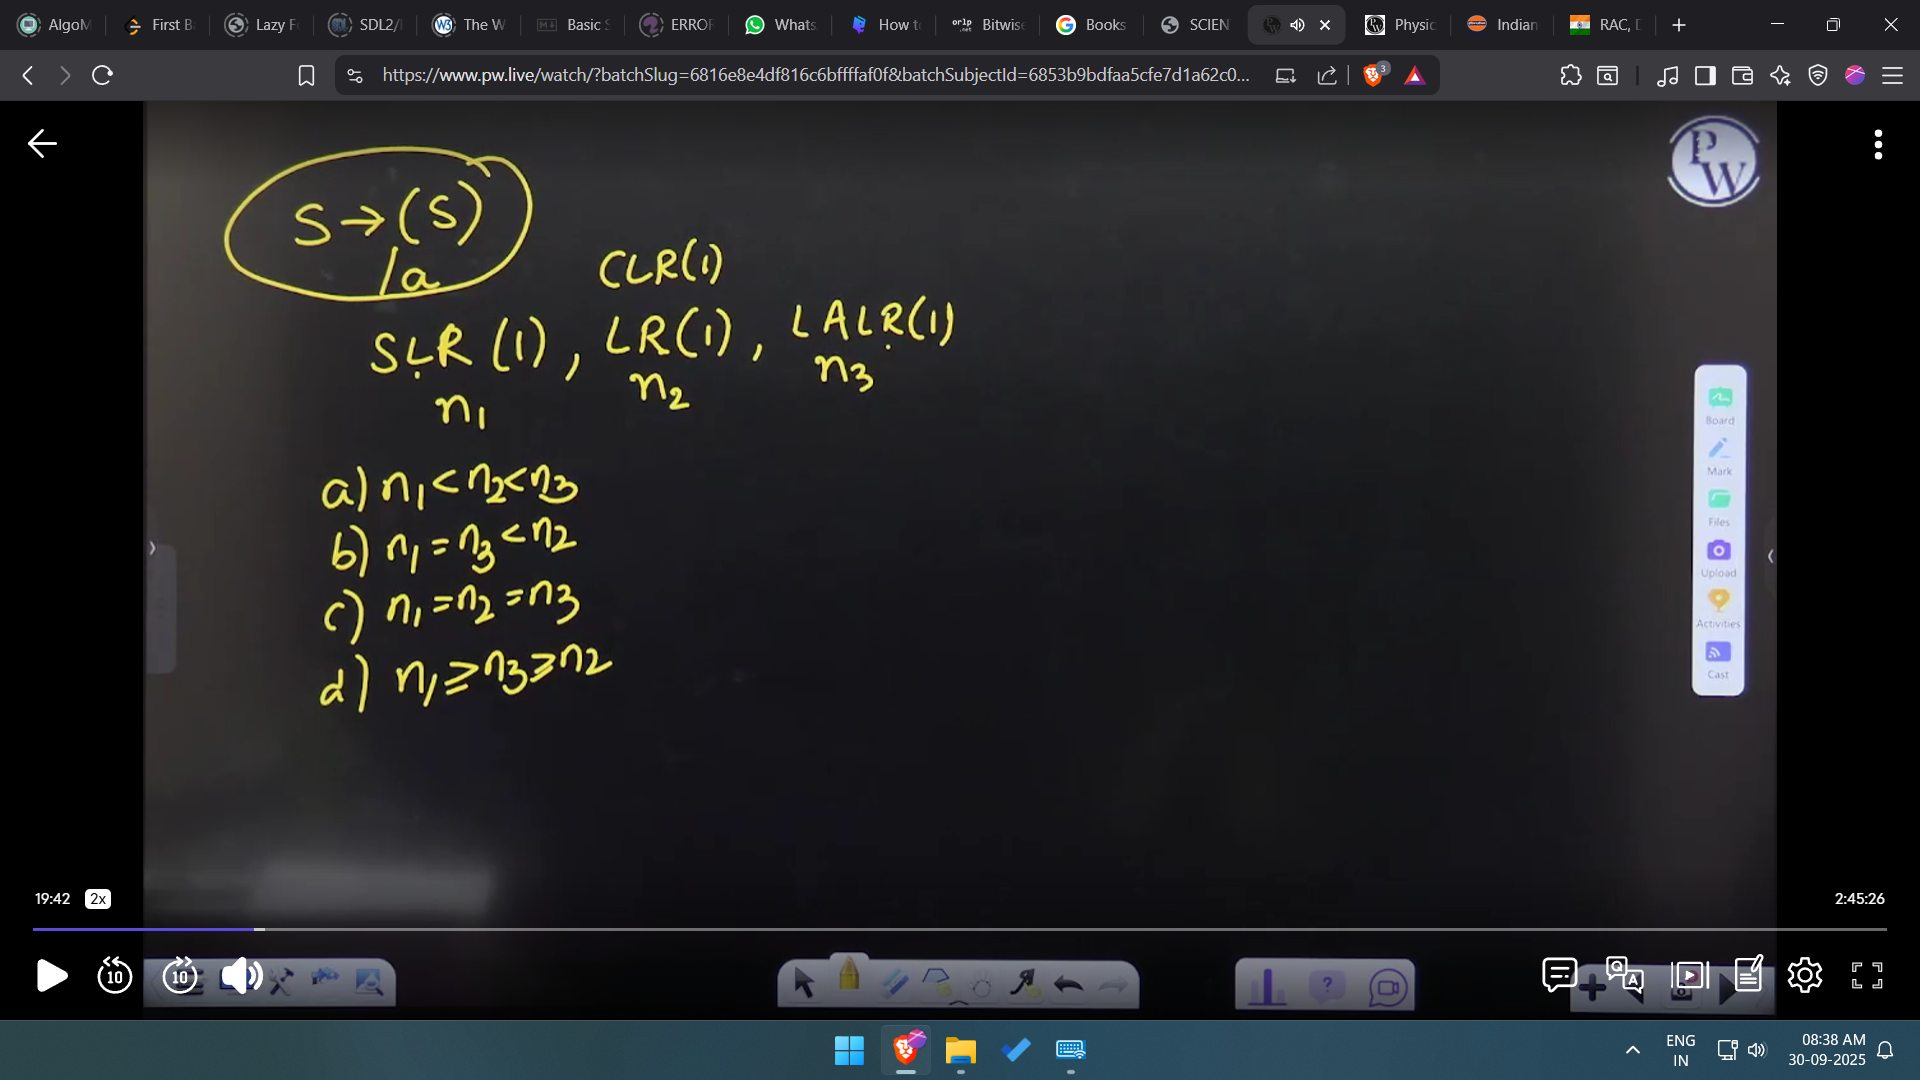 AlgoM
First B
Lazy F
SDL2/
The W
Basic S
ERROF
Whats
How t
orlp .net
Bitwis
Books
SCIEN
Physic
Indian
RAC, D
https://www.pw.live/watch/?batchSlug=6816e8e4df816c6bffffaf0f&batchSubjectId=6853b9bdfaa5cfe7d1a62c0...
3
PW
S → (S)
/a
CLR(1)
SLR (1) , LR(1) , LALR(1)
n1 n2 n3
a) n1 < n2 < n3
b) n1 = n3 < n2
c) n1 = n2 = n3
d) n1 ≥ n3 ≥ n2
Board
Mark
Files
Upload
Activities
Cast
19:42 2x
2:45:26
10 10
ENG
IN
08:38 AM
30-09-2025